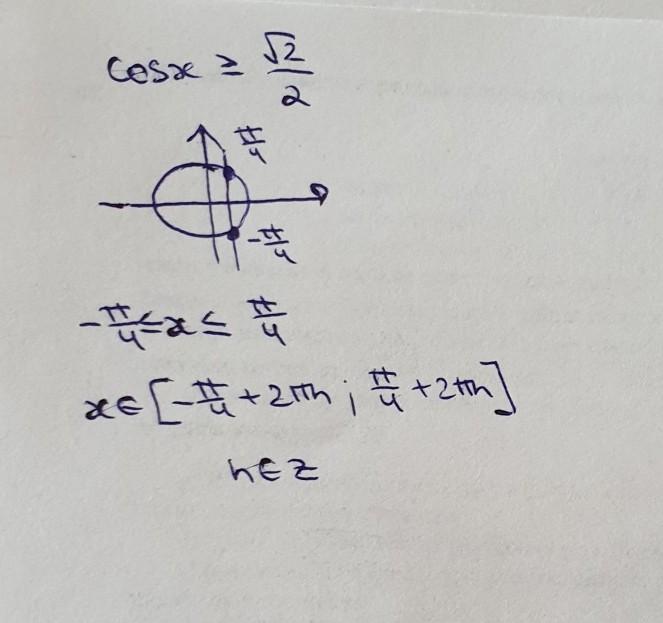 cosx ≥ √2/2
π/4
-π/4
-π/4 ≤ x ≤ π/4
x∈[-π/4+2πn; π/4+2πn]
n∈Z